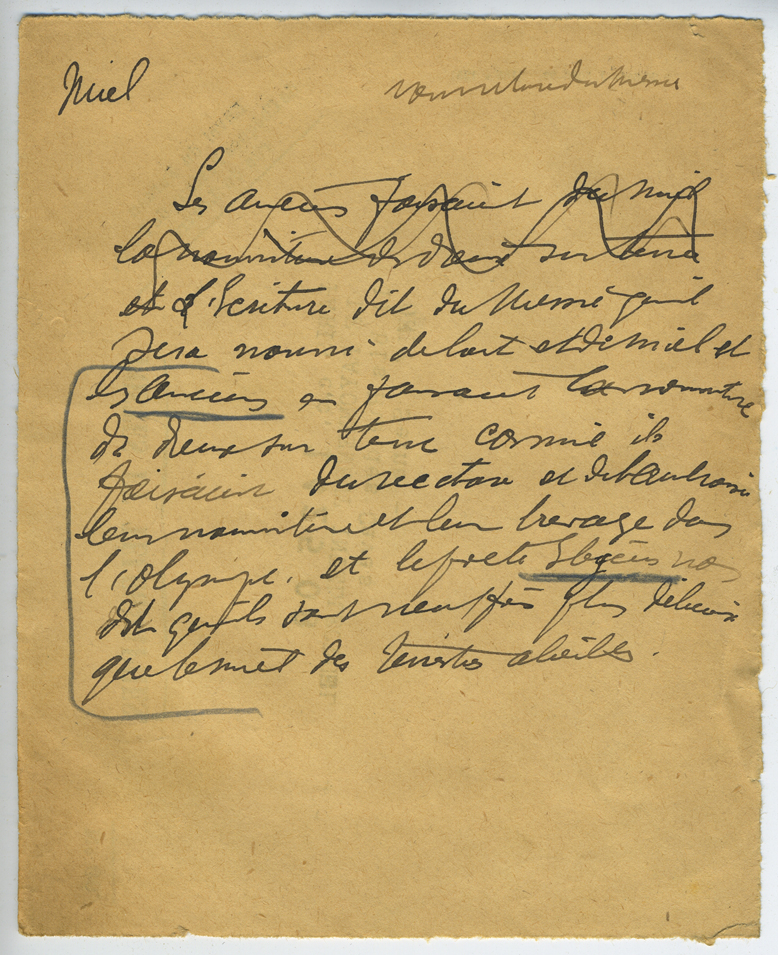 Miel
Les anciens faisaient du miel
la nourriture des dieux sur terre
et l'Ecriture dit du Messie qu'il
sera nourri de lait et de miel et
les anciens en faisaient la nourriture
de dieux sur terre comme ils
faisaient du nectar et de l'ambroisie
leur nourriture et leur brevage dans
l'Olympe. et le poète Ibycus nos
dit qu'ils sont neuf fois plus délicieux
que le miel des terrestres abeilles.